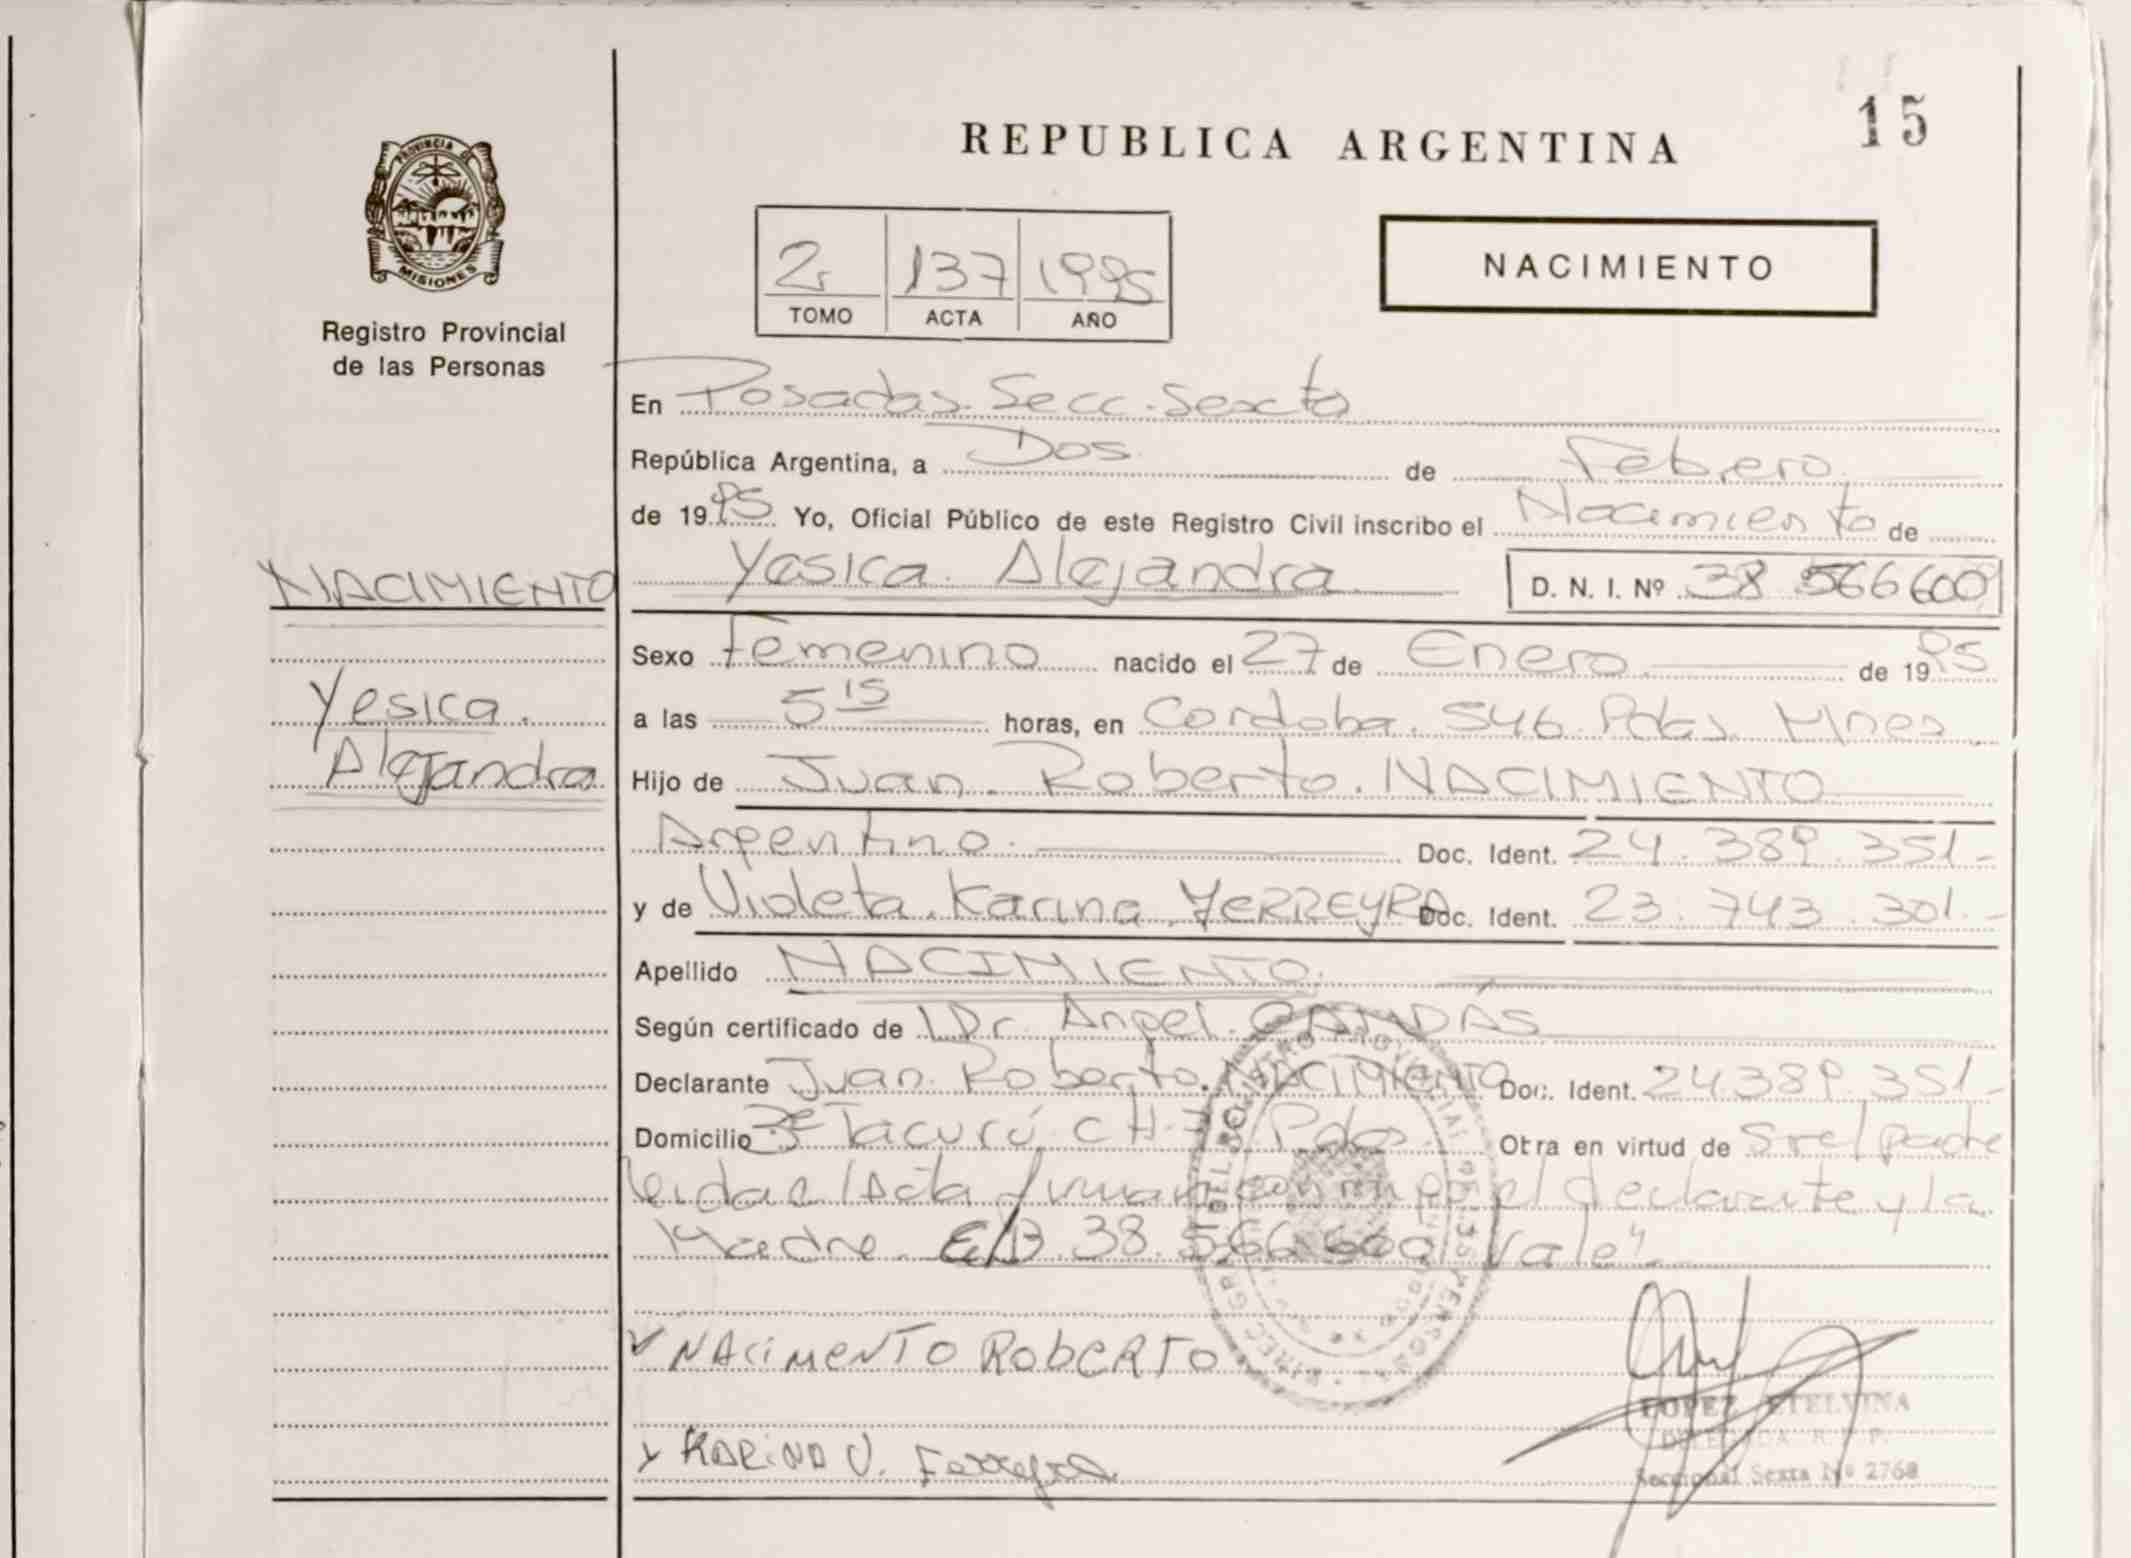 15
REPUBLICA ARGENTINA
PROVINCIA DE MISIONES
Registro Provincial
de las Personas
2 137 1995
TOMO ACTA AÑO
NACIMIENTO
En Posadas. Secc. Sexta
República Argentina, a Dos de Febrero
de 1995 Yo, Oficial Público de este Registro Civil inscribo el Nacimiento de
Yesica Alejandra D. N. I. Nº 38 566 600
NACIMIENTO
Yesica
Alejandra
Sexo Femenino nacido el 27 de Enero de 1995
a las 5 15 horas, en Cordoba 546 Pdas. Mnes.
Hijo de Juan Roberto NACIMIENTO
Argentino Doc. Ident. 24.389.351-
y de Violeta Karina FERREYRA Doc. Ident. 23.743.301.-
Apellido NACIMIENTO
Según certificado de Dr. Angel
Declarante Juan Roberto NACIMIENTO Doc. Ident. 24.389.351-
Domicilio Tacurú CH. Pdas Otra en virtud de
Leida el Acta el declarante y la
Madre. 38.566.600 Vale".
NACimENTO ROBERTO
x KARiNA V. Ferreyra
LOPEZ ETELVINA
DELEGADA R. P. P.
Seccional Sexta Nº 2768